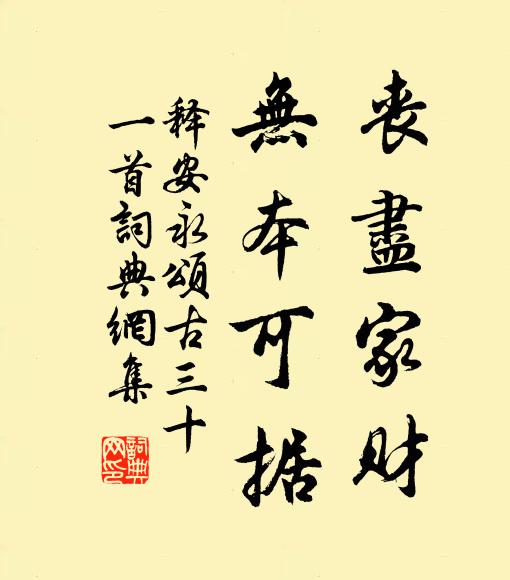 喪盡家財
無本可据
释安永頌古三十
一首詞典網集
詞典
网印